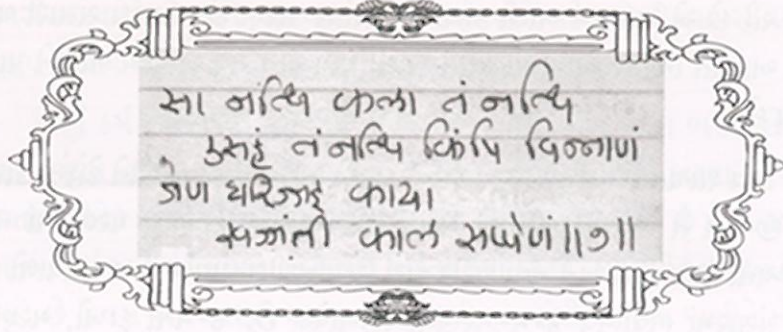 सा नंत्थि कला तं नत्थि
उसहं तं नत्थि किंपि विन्नाणं
जेण धरिज्जइ काया
खज्जंती काल सप्पेणं ॥७॥